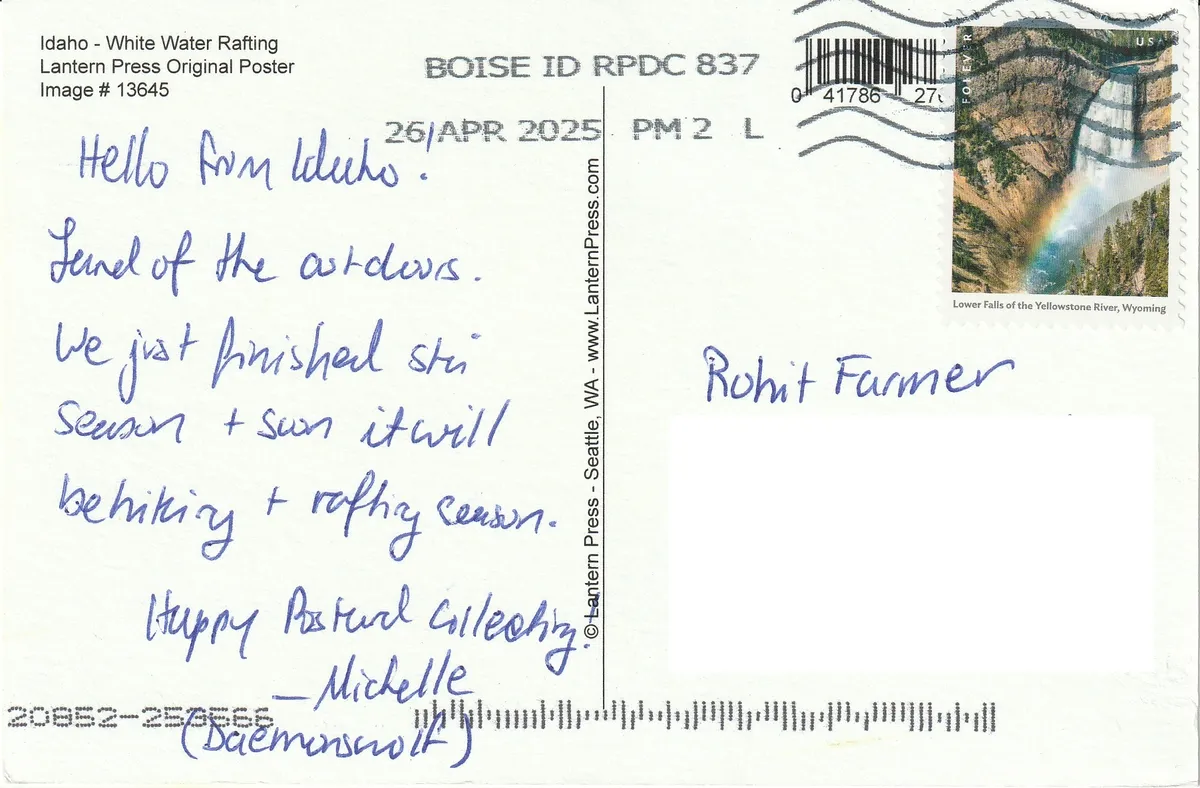 Idaho - White Water Rafting
Lantern Press Original Poster
Image # 13645
BOISE ID RPDC 837
26 APR 2025 PM 2 L
0 41786 27
FOREVER USA
Lower Falls of the Yellowstone River, Wyoming
Hello from Idaho!
Land of the outdoors.
We just finished ski
season + soon it will
be hiking + rafting season.
Happy Postcard Collecting!
— Michelle
(Daemonswolf)
© Lantern Press - Seattle, WA - www.LanternPress.com
Rohit Farmer